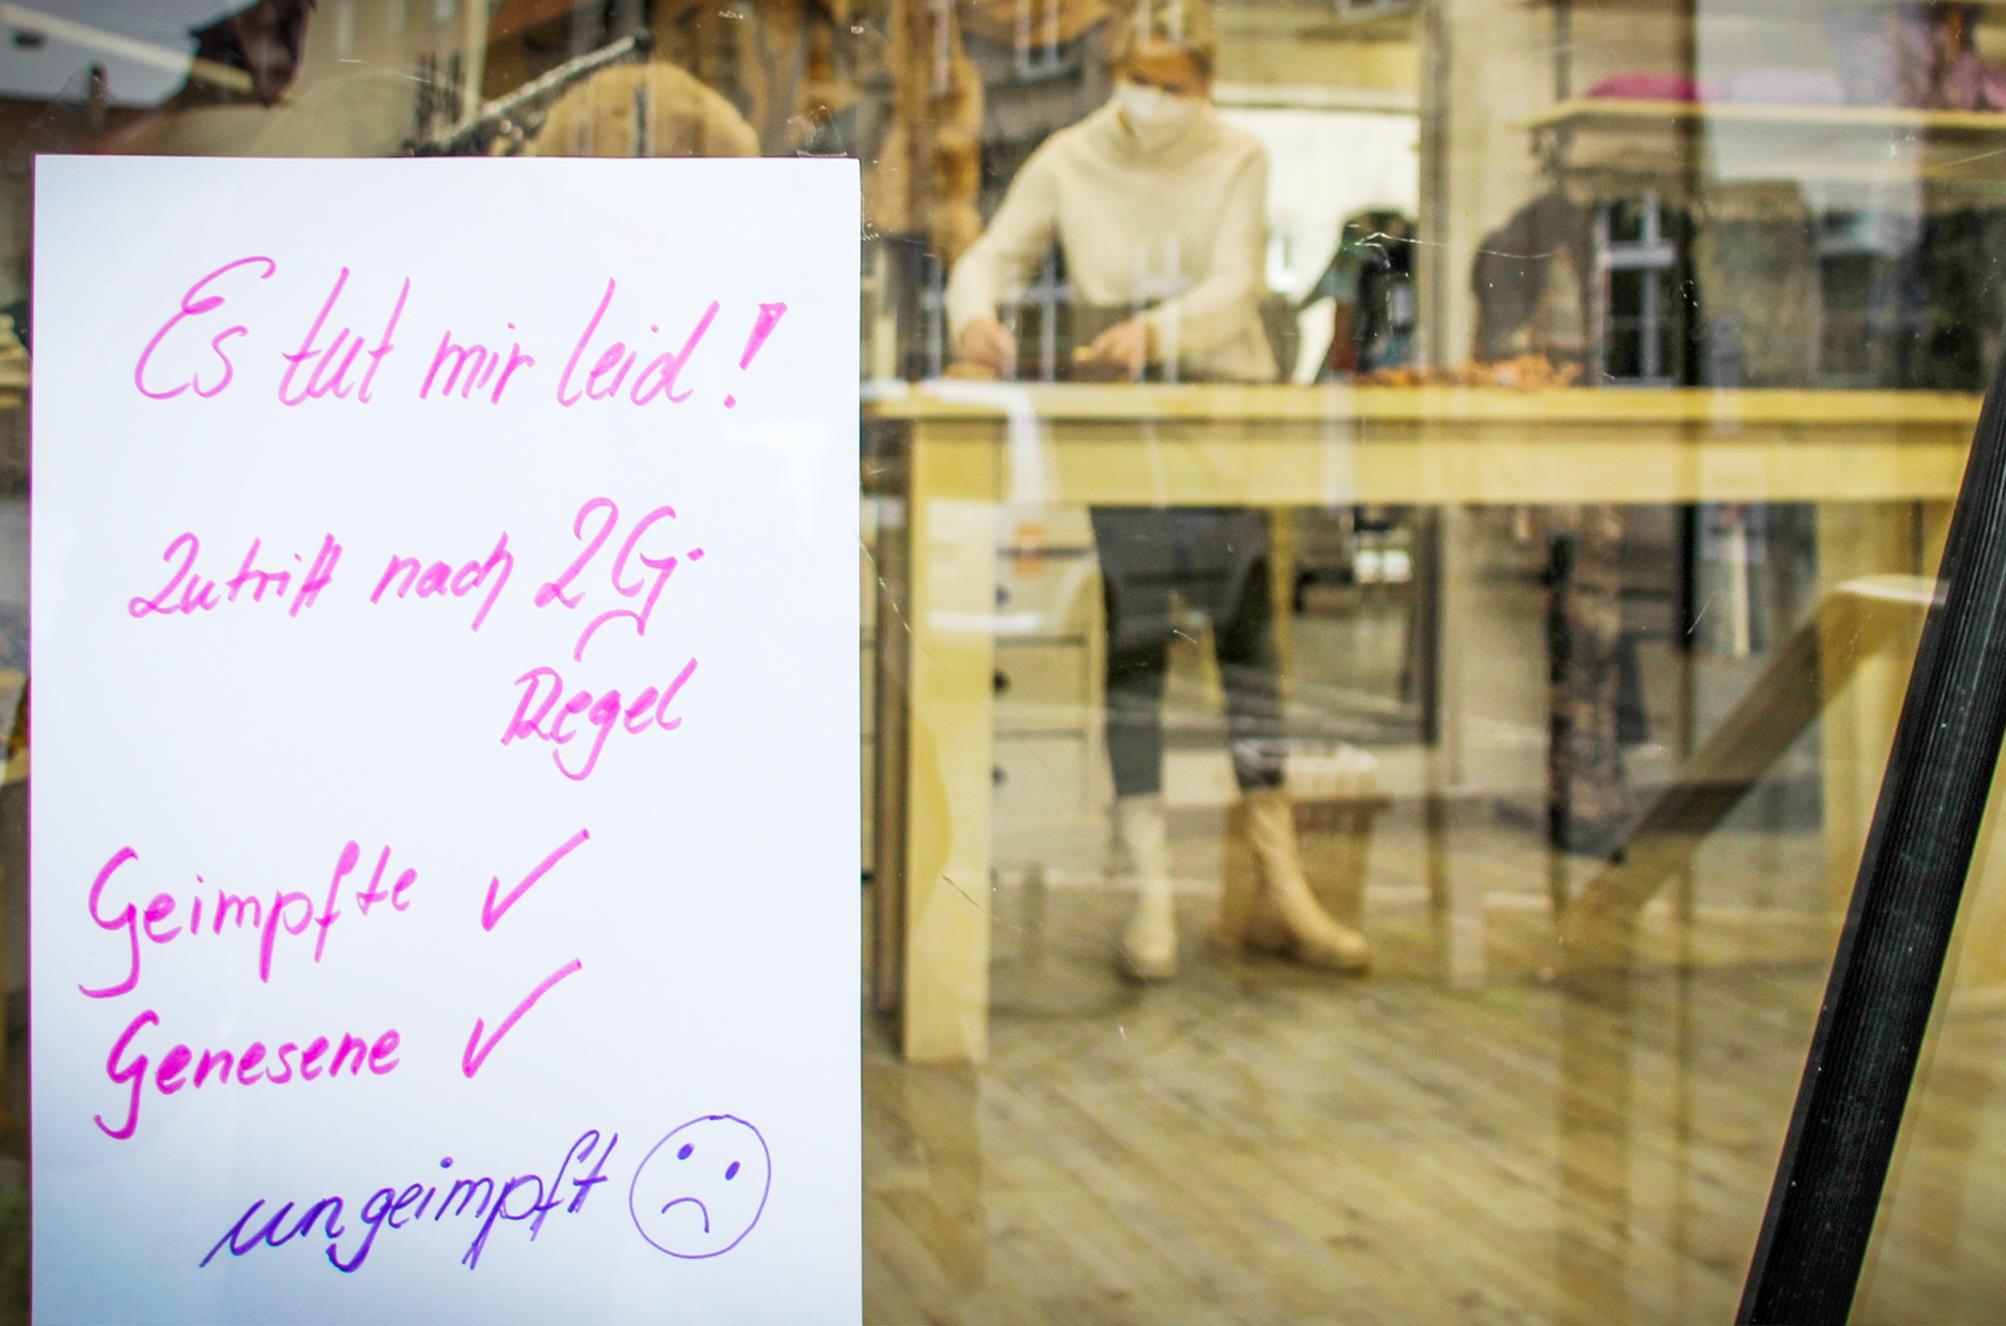 Es tut mir leid!
Zutritt nach 2G-
Regel
Geimpfte ✓
Genesene ✓
ungeimpft ☹